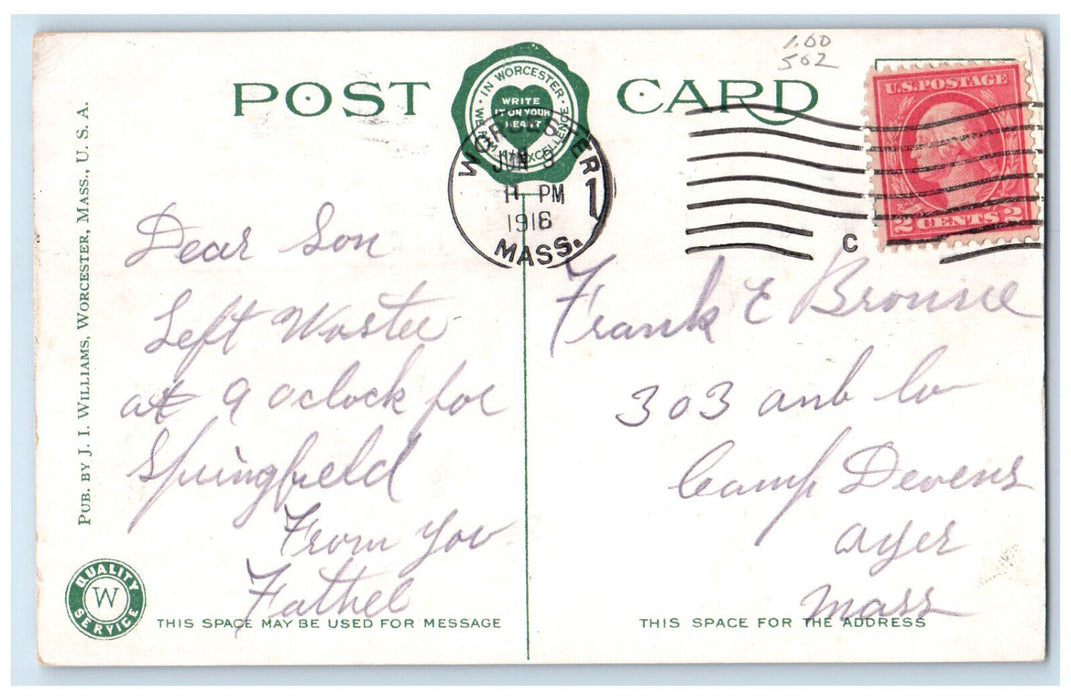 1.00
502
POST CARD
IN WORCESTER
WRITE
IT ON YOUR
HEART
EXCELLENCE
WORCESTER
JUN 9
11 PM
1918
MASS.
1
C
U.S. POSTAGE
2 CENTS 2
PUB. BY J. I. WILLIAMS, WORCESTER, MASS., U. S. A.
Dear Son
Left Woster
at 9 oclock for
Springfield
From you
Father
Frank E Brounie
303 amb Co
Camp Devens
ayer
Mass
QUALITY
W
SERVICE
THIS SPACE MAY BE USED FOR MESSAGE
THIS SPACE FOR THE ADDRESS